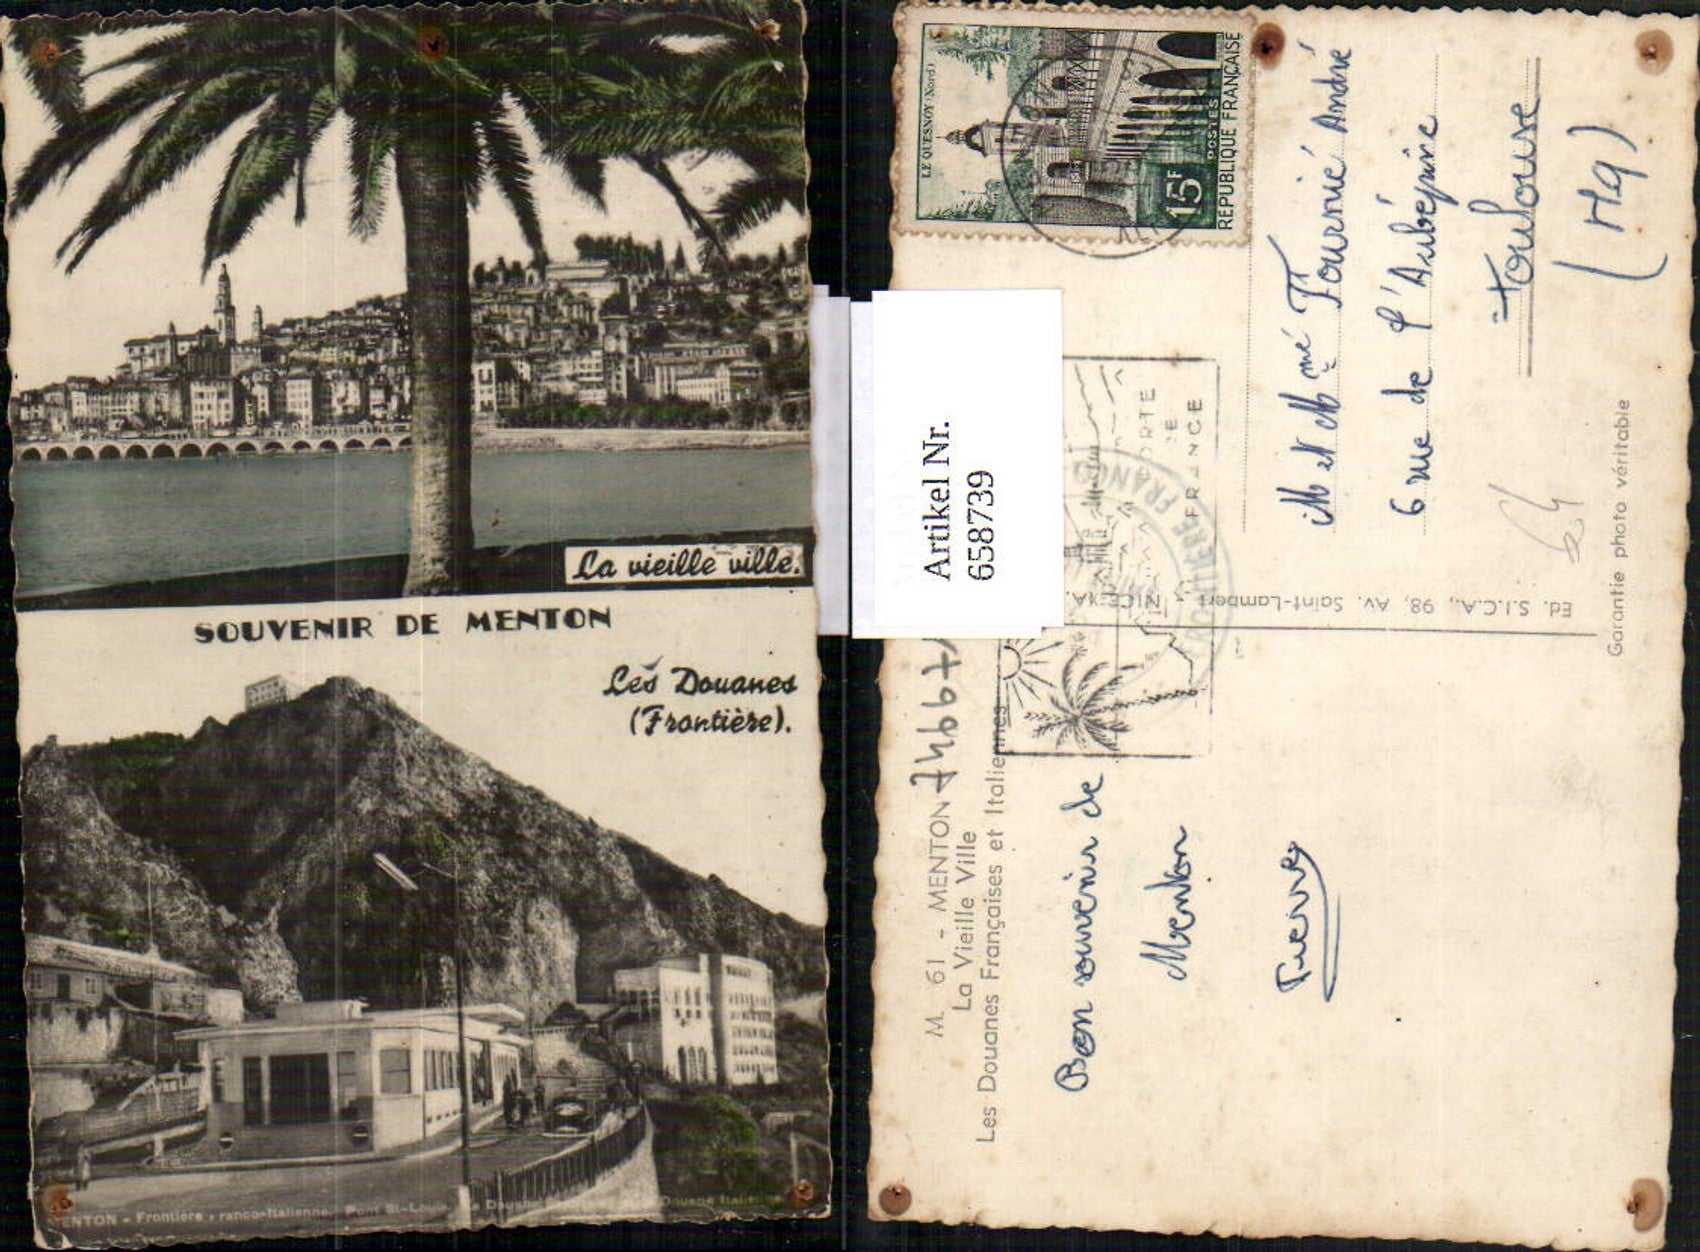 La vieille ville.
SOUVENIR DE MENTON
Les Douanes
(Frontière).
MENTON - Frontière Franco-Italienne. Pont St-Louis. La Douane Douane Italienne
Artikel Nr.
658739
LE QUESNOY (Nord)
15F
POSTES
REPUBLIQUE FRANÇAISE
PORTE
DE
FRANCE
M et Mmé Fournié André
6 rue de l'Aubépine
toulouse
(Hg)
64
Garantie photo véritable
Ed. S.I.C.A., 98, Av. Saint-Lambert NICE
M. 61 - MENTON
La Vieille Ville
Les Douanes Françaises et Italiennes
Bon souvenir de
Menton
Pierre